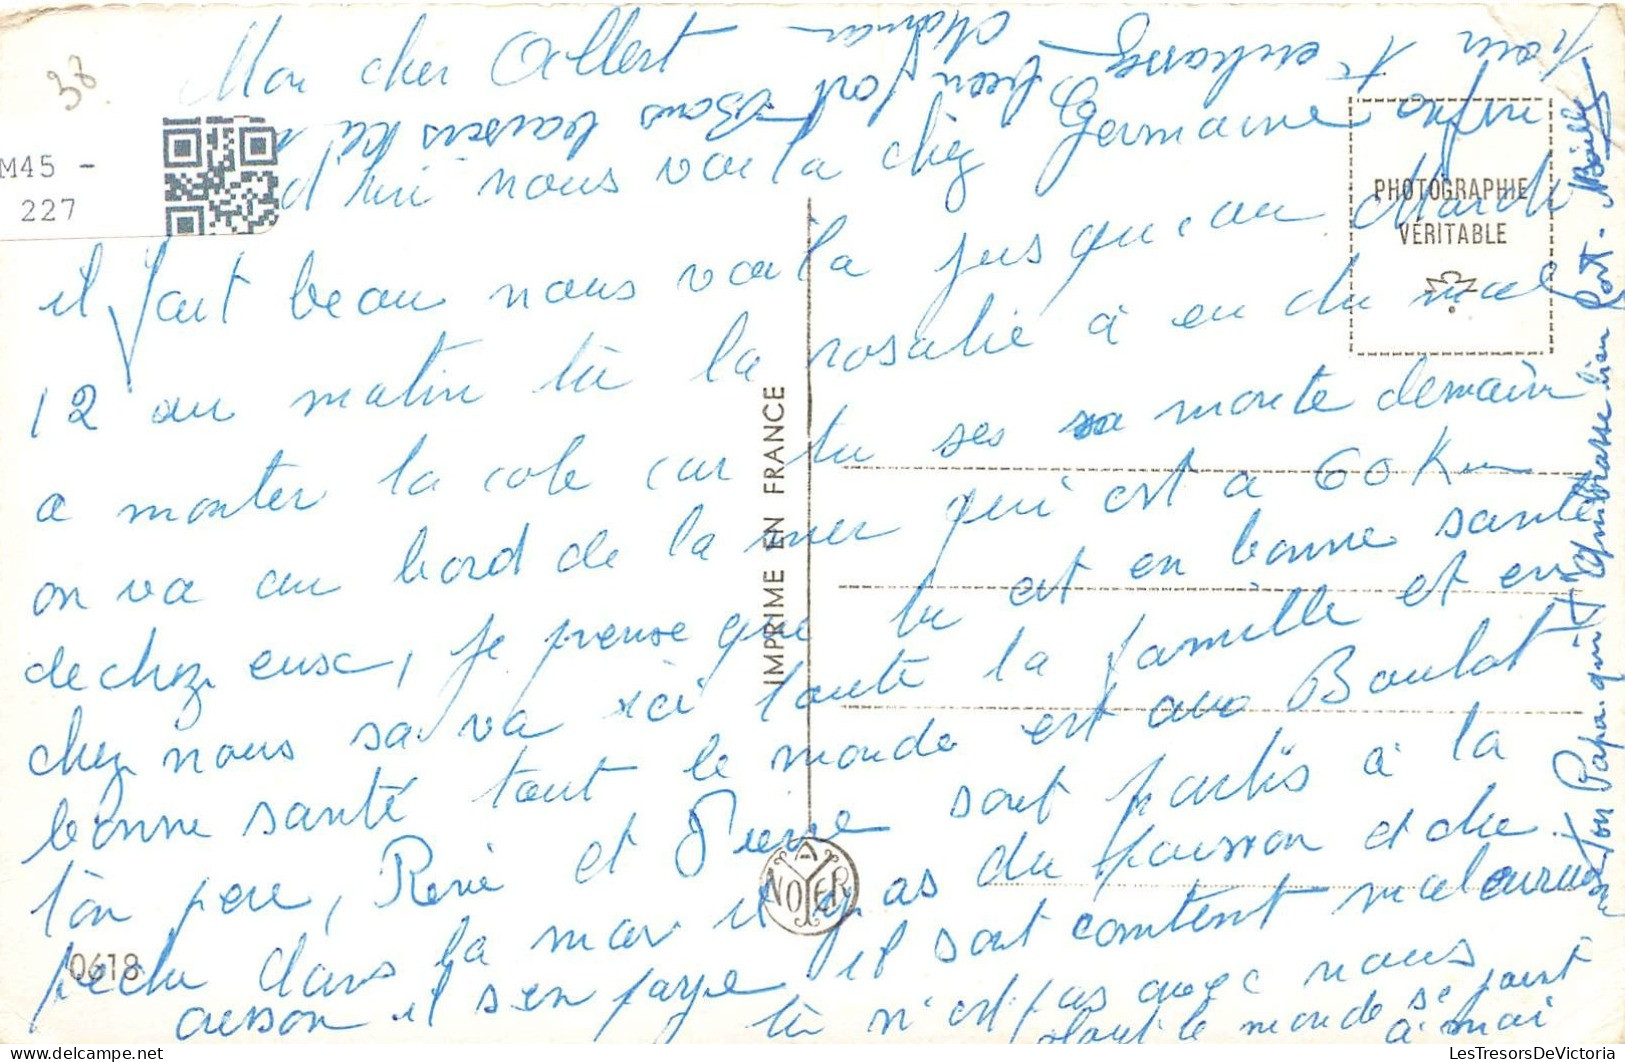 38
M45 -
227
Mon cher Albert
d'hui nous voila chez Germaine enfin
il fait beau nous voila jusqu'au Mardi
12 au matin tu la rosalie à eu du mal
a monter la cote car tu ses sa monte demain
on va au bord de la mer qui est a 60 Km
de chez eusc, je pense que tu est en bonne santé
chez nous sa va ici toute la famille et en
bonne santé tout le monde est avec Boulot
ton pere, René et Pierre sont partis à la
peche dans la mar il y a pas du poisson et che
cresson il s'en paye il sont content maleureuse
tu n'est pas avec nous
tout le monde se joint
à moi
pour t'embrasser
bien fort
Maman
Bons baisers
Ton Papa qui t'embrasse bien fort.
IMPRIME EN FRANCE
PHOTOGRAPHIE
VÉRITABLE
A
NOYER
0618
LesTresorsDeVictoria